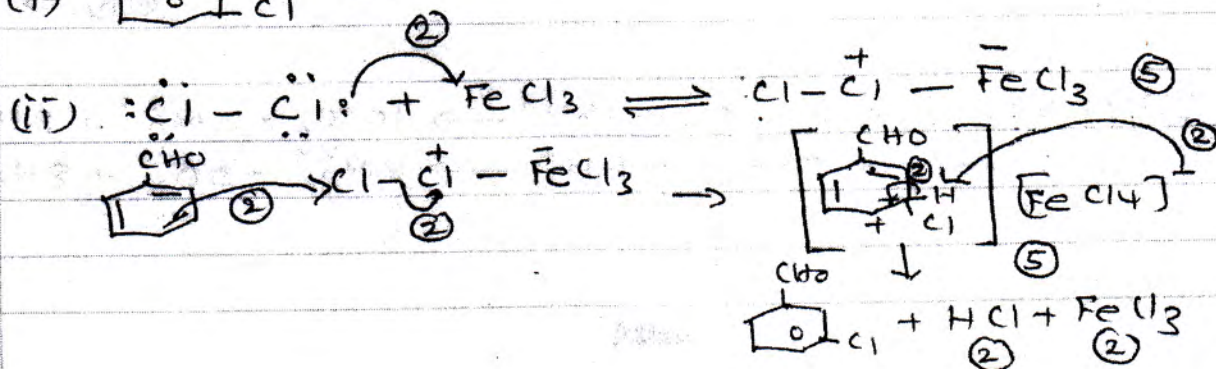 (i) Cl
②
(ii) :Cl – Cl: + FeCl3 ⇌ Cl – Cl⁺ – F̄eCl3 ⑤
CHO CHO ②
② Cl – Cl⁺ – F̄eCl3 → [ ② H + Cl ] [F̄eCl4]
② ⑤
↓
CHO
Cl + HCl + FeCl3
② ②